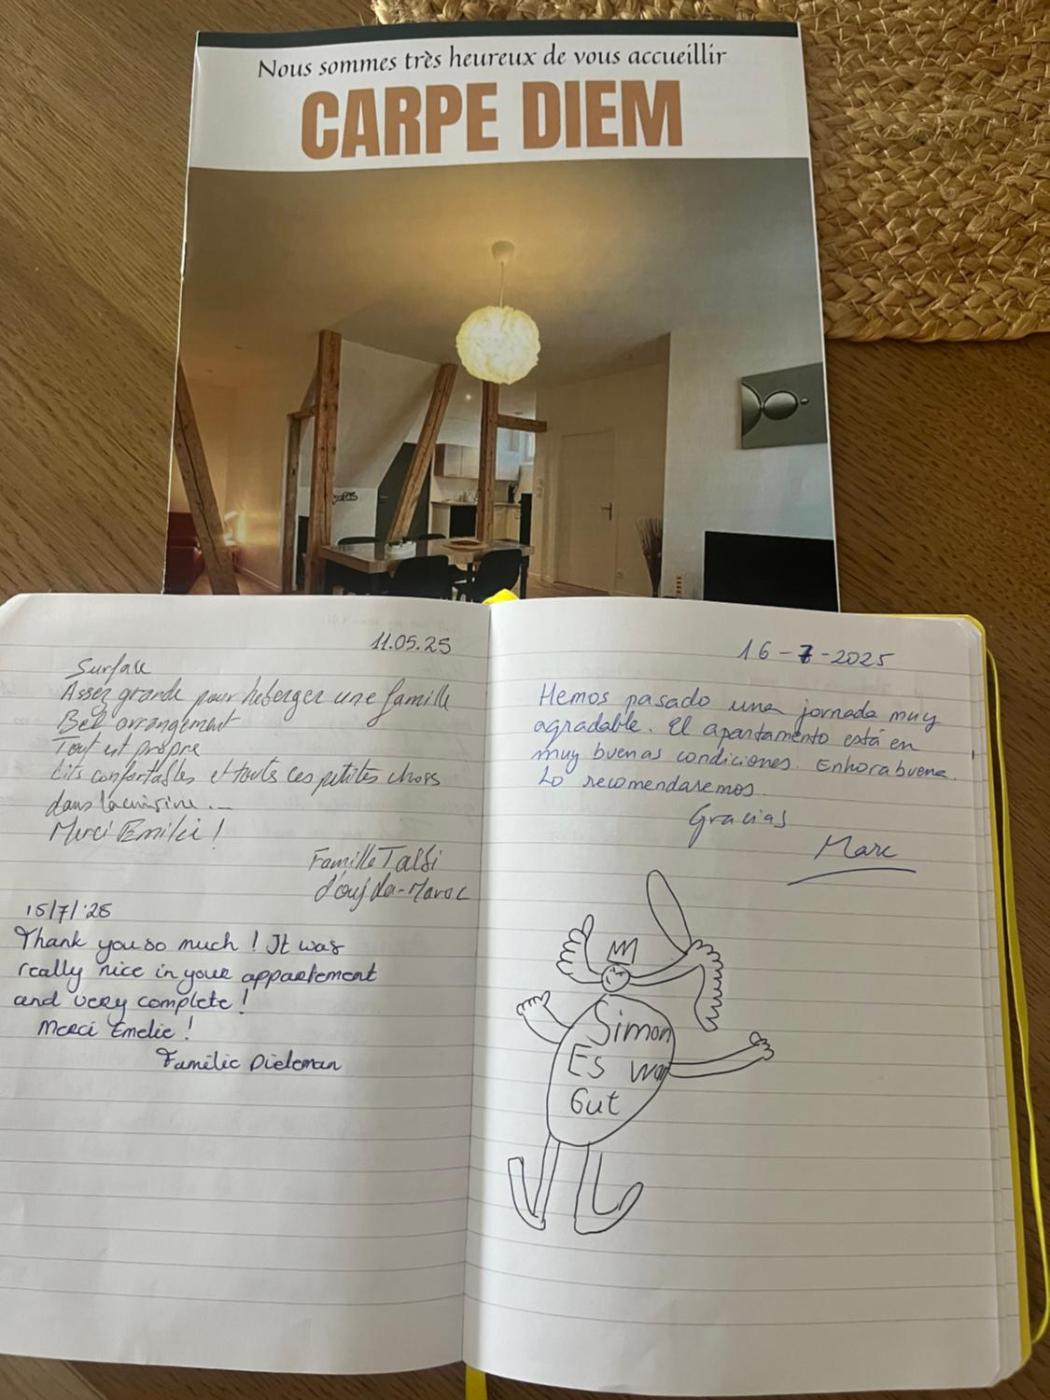 Nous sommes très heureux de vous accueillir
CARPE DIEM
11.05.25
Surface
Assez grande pour heberger une famille
Bel arrangement
Tout est propre
Lits confortables et touts ces petites choses
dans la cuisine...
Merci Emilie !
Famille Talbi
d'oujda-Maroc
15/7/'25
Thank you so much ! It was
really nice in your appartement
and very complete !
Merci Emelie !
Familie Dieleman
16-7-2025
Hemos pasado una jornada muy
agradable. El apartamento está en
muy buenas condiciones. Enhorabuena.
Lo recomendaremos.
Gracias
Marc
Simon
Es war
Gut